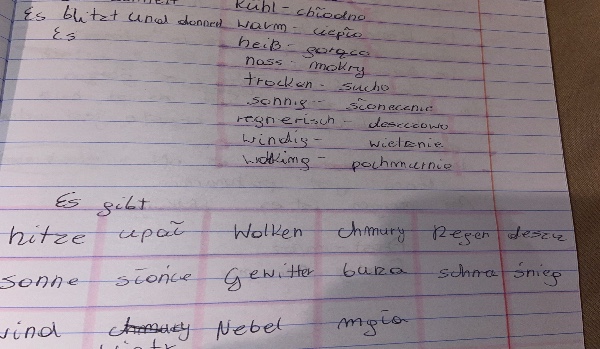 kühl - chłodno
Es blitzt und donnert warm - ciepło
Es
heiß - gorąco
nass - mokry
trocken - sucho
sonnig - słonecznie
regnerisch - deszczowo
windig - wietznie
pochmurnie
Es gibt
hitze upał Wolken chmury Regen deszcz
sonne słońce Gewitter burza schna śnieg
wind Nebel mgła